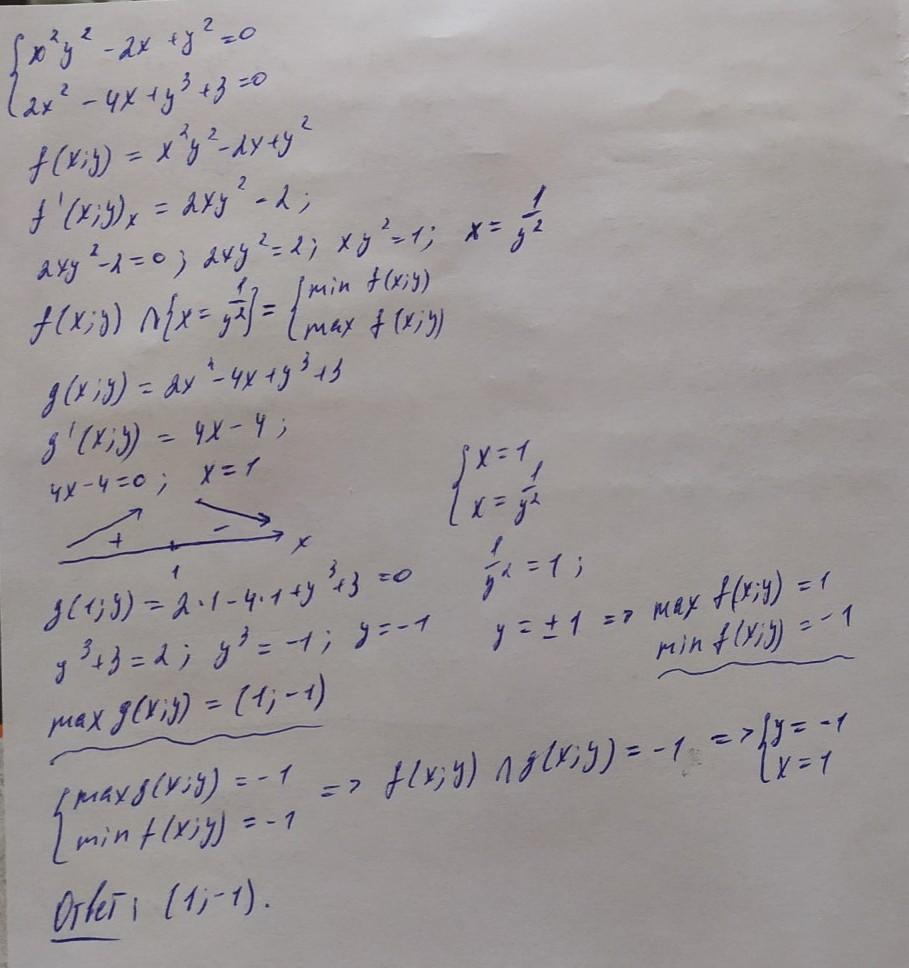 { x²y² - 2x + y² = 0
2x² - 4x + y³ + 3 = 0
f(x;y) = x²y² - 2x + y²
f'(x;y)ₓ = 2xy² - 2;
2xy² - 2 = 0; 2xy² = 2; xy² = 1; x = 1/y²
f(x;y) ∩ {x = 1/y²} = { min f(x;y)
max f(x;y)
g(x;y) = 2x² - 4x + y³ + 3
g'(x;y) = 4x - 4;
4x - 4 = 0; x = 1
+ - x
1
g(1;y) = 2·1 - 4·1 + y³ + 3 = 0
y³ + 3 = 2; y³ = -1; y = -1
max g(x;y) = (1;-1)
{ x = 1
x = 1/y²
1/y² = 1;
y = ±1 => max f(x;y) = 1
min f(x;y) = -1
{ max g(x;y) = -1
min f(x;y) = -1 => f(x;y) ∩ g(x;y) = -1 => { y = -1
x = 1
Ответ: (1;-1).